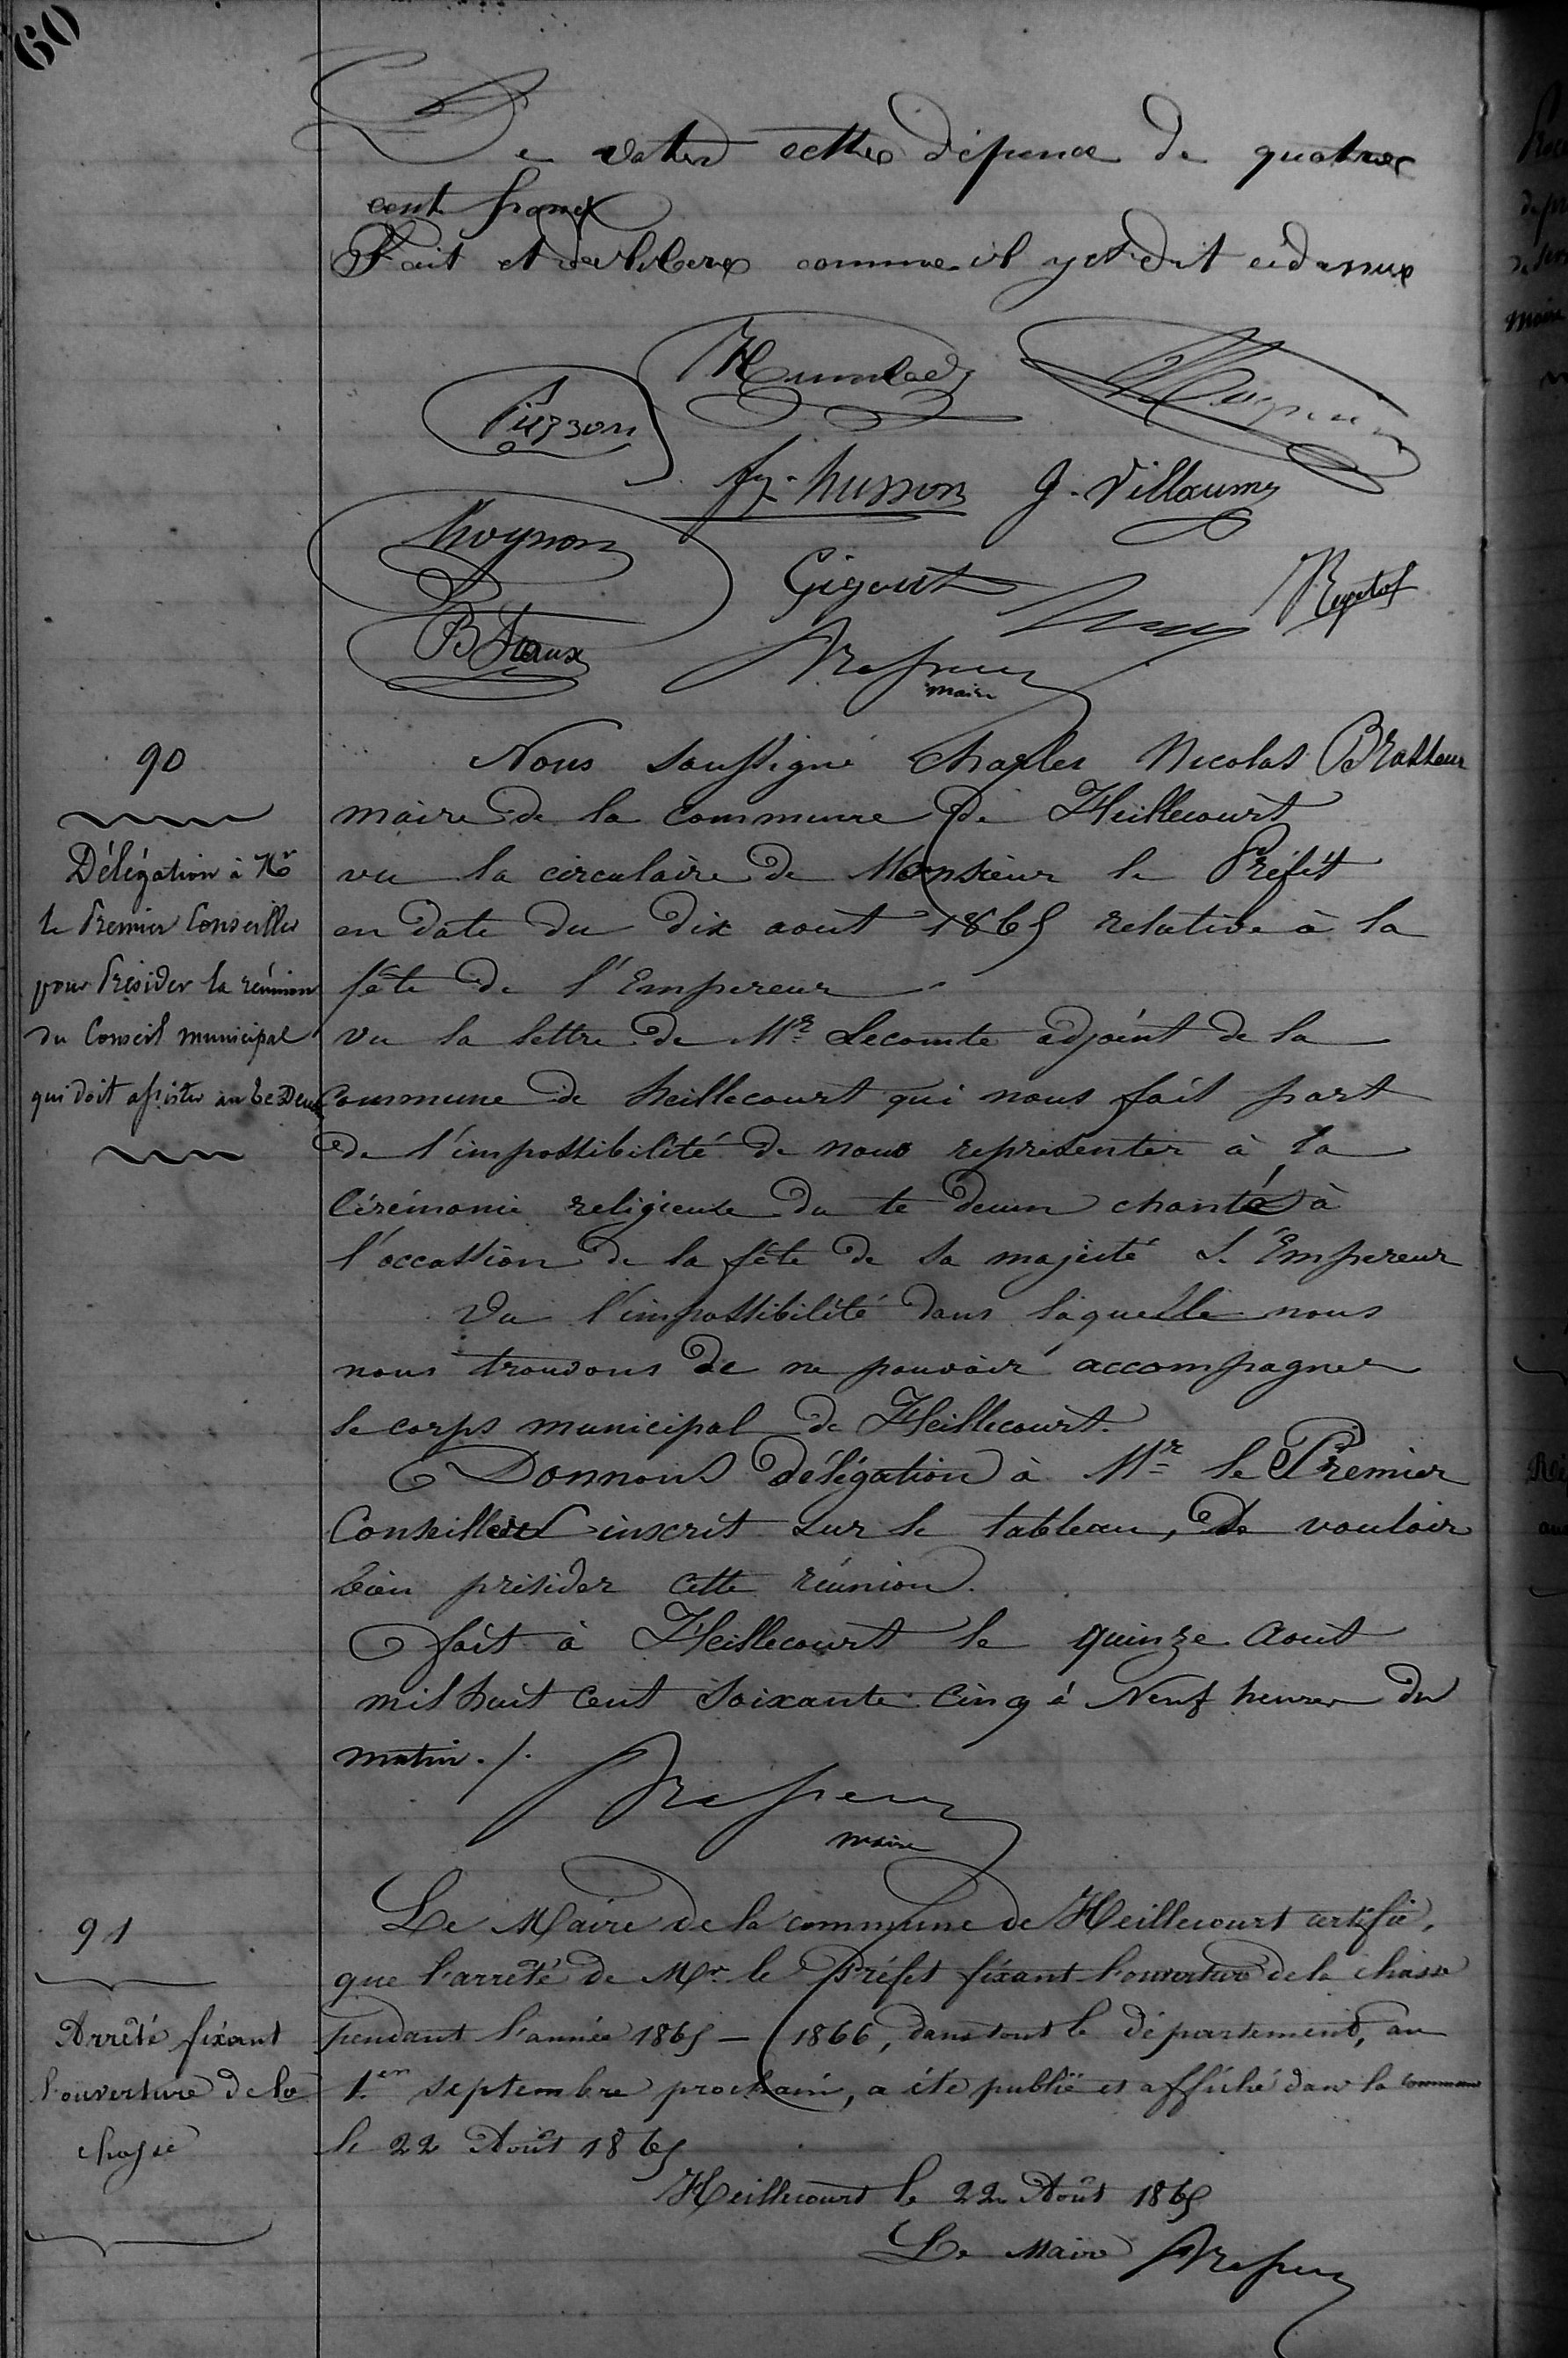 60
De voter cette dépense de quatre
cent francs
Fait et délibéré comme il y est dit cidessus
Humbert
Pierson
fç. husson G. Villaume
Moynon
Gigout
B Staux
Brasseur
maire
90
Délégation à Mr
le Premier Conseiller
pour Présider la réunion
du Conseil municipal
qui doit assister au te Deum
Nous soussigné Charles Nicolas Brasseur
maire de la commune de Heillecourt
vu la circulaire de Monsieur le Préfet
en date du dix août 1865 relative à la
fête de l'Empereur
Vu la lettre de Mr Lecomte adjoint de la
Commune de heillecourt qui nous fait part
de l'impossibilité de nous représenter à la
Cérémonie religieuse du te deum chanté à
l'occassion de la fête de sa majesté L'Empereur
Vu l'impossibilité dans laquelle nous
nous trouvons de ne pouvoir accompagner
le corps municipal de Heillecourt.
Donnons délégation à Mr le Premier
Conseiller inscrit sur le tableau, de vouloir
bien présider cette réunion.
fait à Heillecourt le quinze Août
mil huit cent soixante Cinq à Neuf heures du
matin ./.
Brasseur
maire
91
Arrêté fixant
l'ouverture de la
chasse
Le Maire de la commune de Heillecourt certifie,
que l'arrêté de Mr le Préfet fixant l'ouverture de la chasse
pendant l'année 1865 – 1866, dans tout le département, au
1er septembre prochain, a été publié et affiché dans la commune
le 22 Août 1865
Heillecourt le 22 Août 1865
Le Maire Brasseur